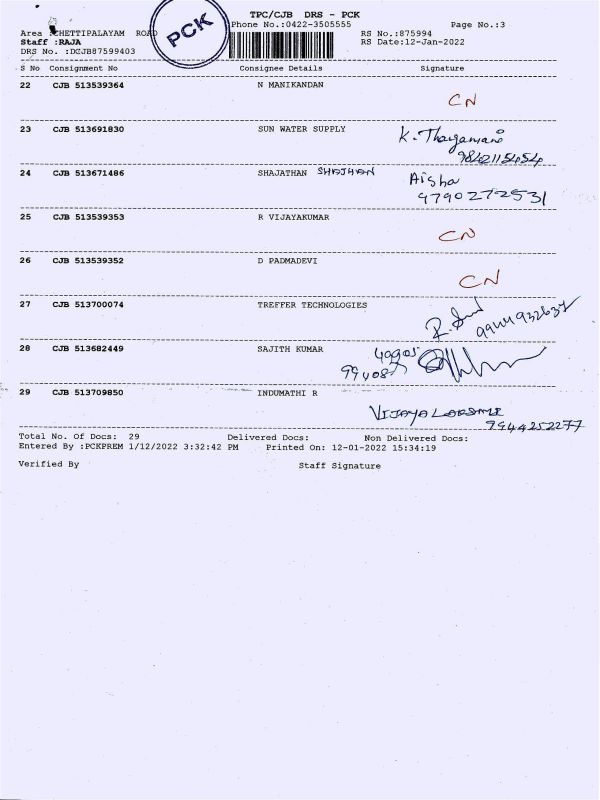 TPC/CJB DRS - PCK
Phone No.:0422-3505555 Page No.:3
Area :CHETTIPALAYAM ROAD RS No.:875994
Staff :RAJA RS Date:12-Jan-2022
DRS No. :DCJB87599403
PCK
S No Consignment No Consignee Details Signature
22 CJB 513539364 N MANIKANDAN
CN
23 CJB 513691830 SUN WATER SUPPLY K. Thayamani
9842115454
24 CJB 513671486 SHAJATHAN SHAJHAN Aisha
9790272531
25 CJB 513539353 R VIJAYAKUMAR
CN
26 CJB 513539352 D PADMADEVI
CN
27 CJB 513700074 TREFFER TECHNOLOGIES
28 CJB 513682449 SAJITH KUMAR
29 CJB 513709850 INDUMATHI R
VIJAYALAKSMI
9944252277
Total No. Of Docs: 29 Delivered Docs: Non Delivered Docs:
Entered By :PCKPREM 1/12/2022 3:32:42 PM Printed On: 12-01-2022 15:34:19
Verified By Staff Signature